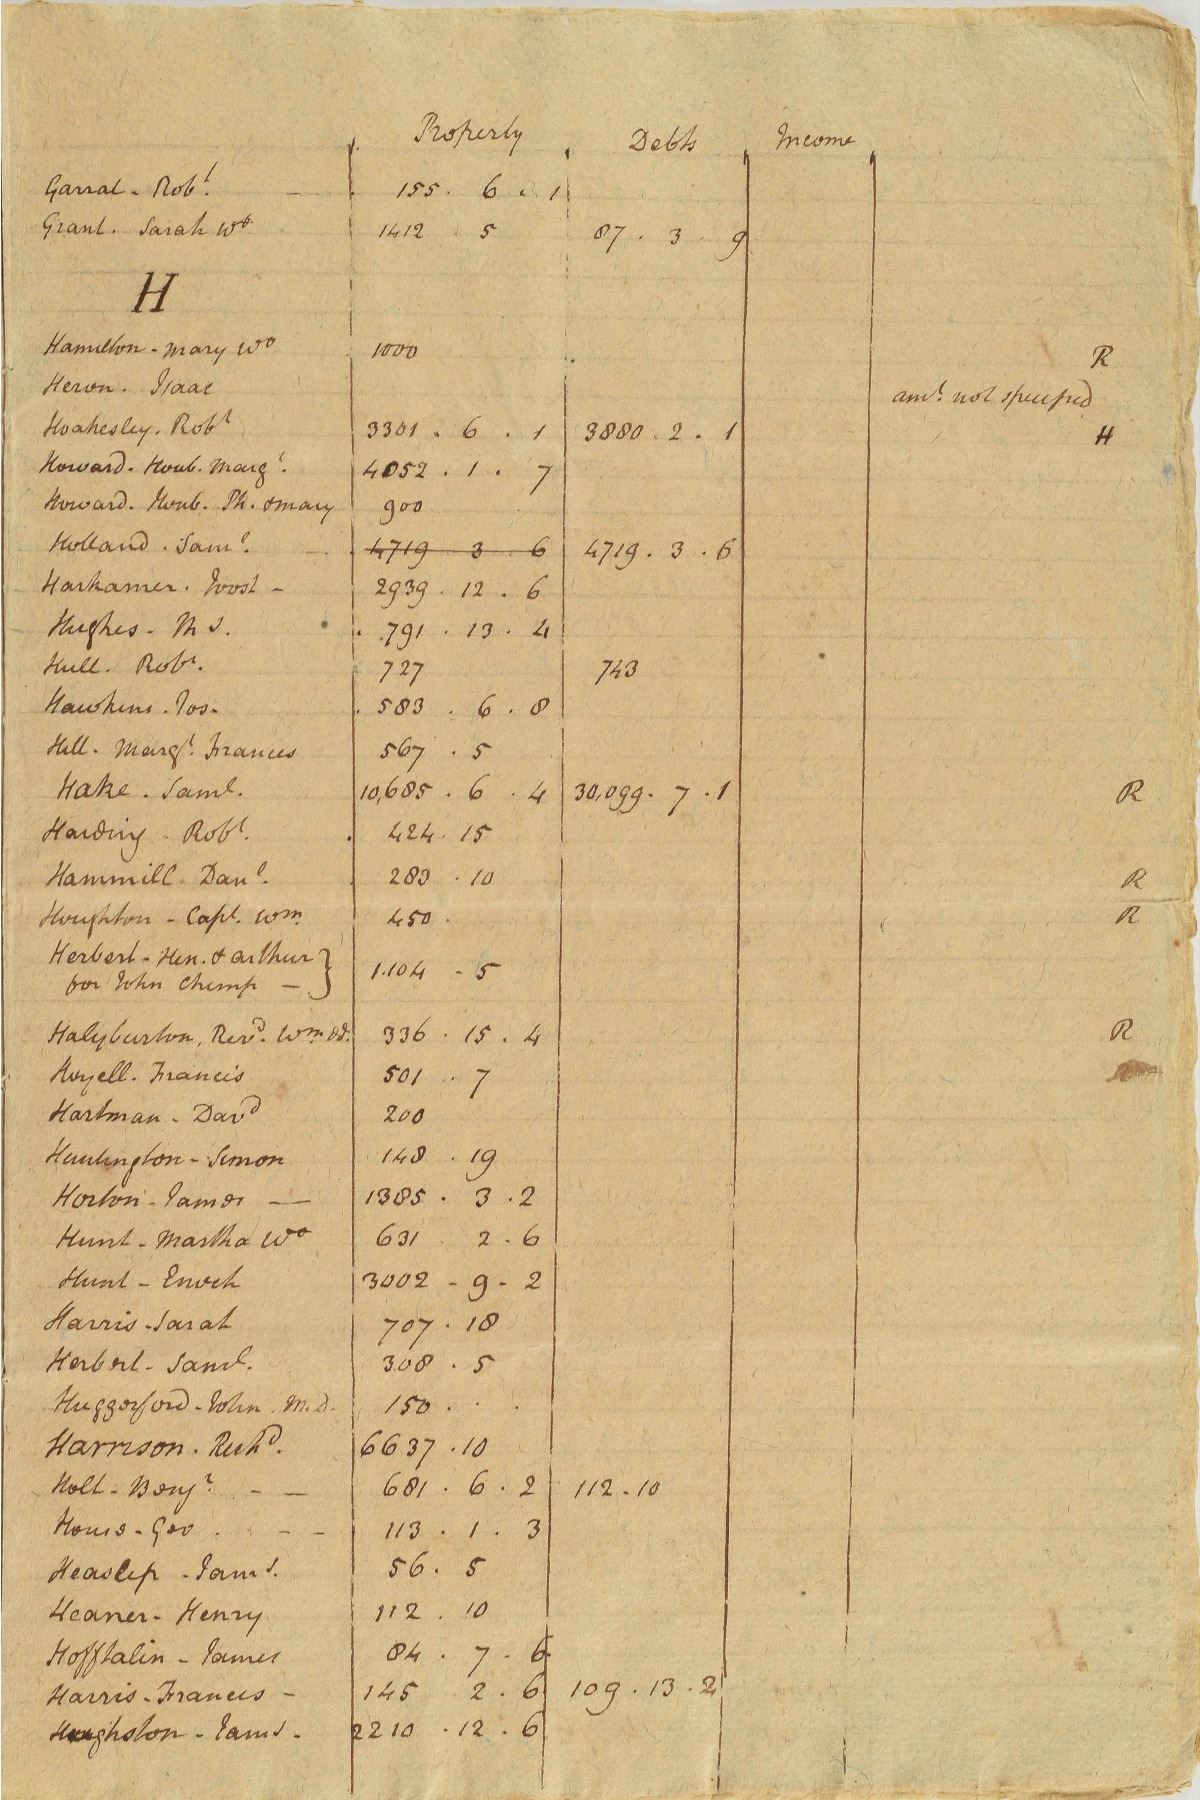 Property Debts Income
Garrat - Robt. - 155. 6. 1
Grant. Sarah Wo 1412 5 87. 3 9
H
Hamilton - Mary Wo 1000 R
Heron. Isaac amt. not specified
Hoakesley. Robt 3301. 6. 1 3880. 2. 1 H
Howard. Houb. Margt. 4052. 1. 7
Howard. Houb. Ph. & Mary 900
Holland. Saml. 4719 3 6 4719. 3. 6
Harkamer. Joost - 2939. 12. 6
Hughes - Ths. 791. 13. 4
Hull. Robt. 727 743
Hawkins. Jos. 583. 6. 8
Hill. Margt. Frances 567. 5
Hake. Saml. 10,685. 6. 4 30,099. 7. 1 R
Harding Robt. 424. 15
Hammill. Danl. 283. 10 R
Houghton - Capt. Wm. 450. R
Herbert - Hen. & Arthur
for John Chimp - } 1.104 - 5
Halyburton, Revd. Wm. 336. 15. 4 R
Hoyell. Francis 501. 7
Hartman - Davd 200
Huntington - Simon 148. 19
Horton - James -- 1385. 3. 2
Hunt - Martha Wo 631 2 - 6
Hunt - Enoch 3002 - 9 - 2
Harris - Sarah 707. 18
Herbert - Saml. 308. 5
Huggerford - John. M.D. 150. . .
Harrison. Richd. 6637. 10
Holt - Benjn. - - 681. 6. 2 112. 10
House - Geo. - - 113. 1. 3
Heaslip - Jams. 56. 5
Heaner - Henry 112. 10
Hofftalin - James 84. 7. 6
Harris - Francis - 145 2. 6 109. 13. 2
Hughston - Jams. 2210. 12. 6